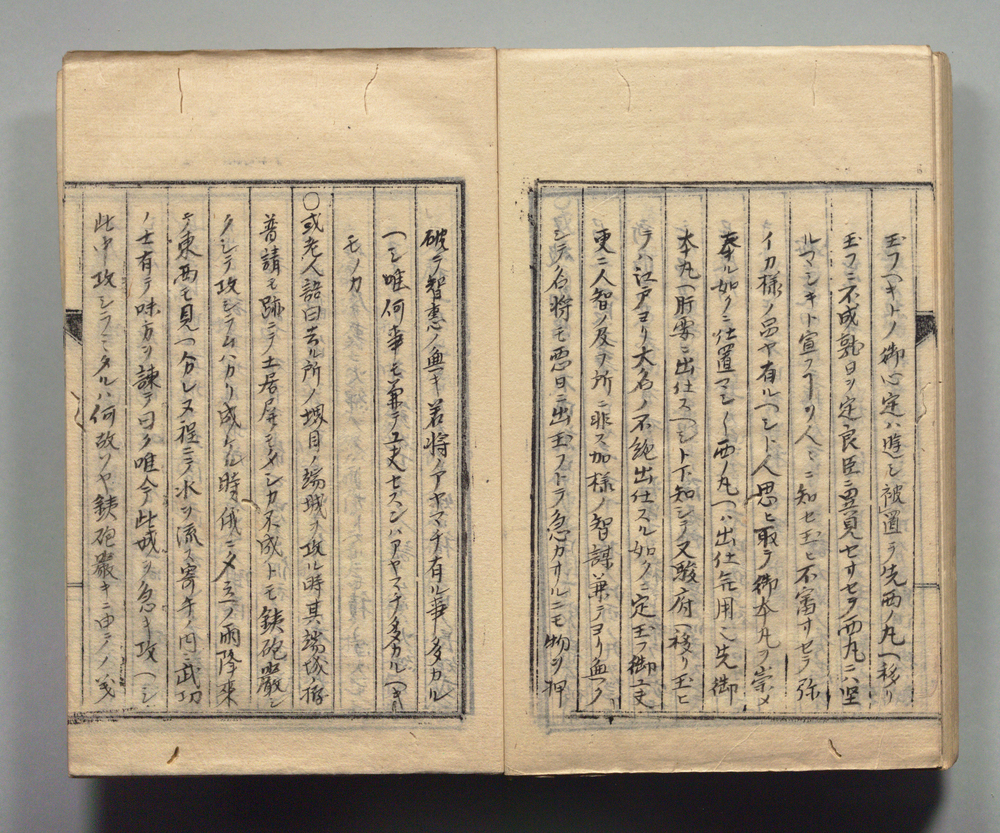 玉フヘキトノ御心定ハ遊シ被置テ先西ノ丸ヘ移リ
玉フニ不成孰日ヲ定良臣ニ異見セサセラノ西丸ニハ坚
ルマシキト宣フ人ニ知セ玉ヒ不審サセラ弥
イカ様ノ品ヤ有ルヘシト人思ヒ取テ御本丸ヲ崇メ
奉ル如クニ仕置マシ〱西ノ丸ヘハ出仕無用ニ先御
本丸ヘ肝要ニ出仕スヘシト下知シテ又駿府ヘ移リ玉ヒ
テハ江戸ヨリ大名ノ不絶出仕スル如クニ定玉フ御工夫
更ニ人智ノ及フ所ニ非ス加様ノ智謀兼テヨリ無ク
シテ名将モ悪日ニ出玉フトテ急カサルニモ物ヲ押
破テ智恵ノ無キ若将ノアヤマチ有ル事多カル
ヘシ唯何事モ兼テ工夫セスンハアヤマチ多カルヘキ
モノカ
〇或老人語曰去ル所ノ堺目ノ端城ヲ攻ル時其端城ノ搆
普請モ跡ニテ土居屏モシカ不成トモ鉄砲嚴シ
クシテ攻シラムハカリ成ケル時俄ニ夕立ノ雨降来
テ東西モ見ヘ分レヌ程ニテ水ヲ流ス寄手ノ内武功
ノ士有テ味方ヲ諌テ曰ク唯今此城ヲ急キ攻ヘシ
此中攻シラミタルハ何故ソヤ鉄砲嚴キニ由テノ義